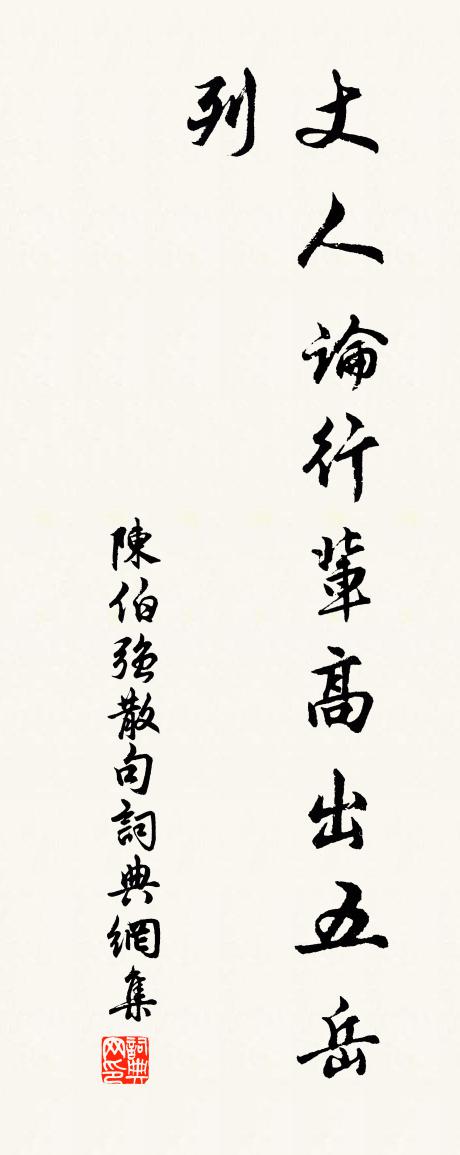 丈人論行輩高出五岳
列
陳伯強散句詞典網集
詞典网印